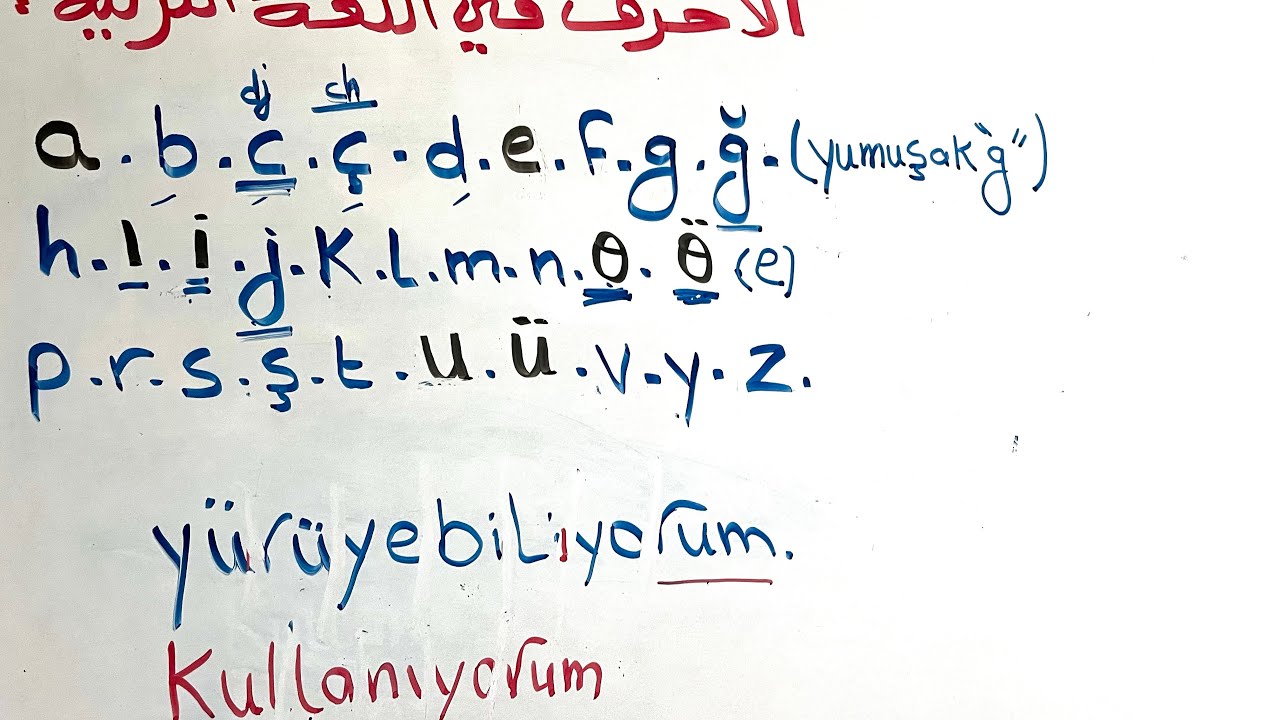 الأحرف في اللغة التركية :
dj ch
a . b . c . ç . d . e . f . g . ğ . (yumuşak "ğ")
h . ı . i . j . K . L . m . n . θ . θ̈ (e)
p . r . s . ş . t . u . ü . v . y . z .
yürüyebiLiyorum.
Kullanıyorum